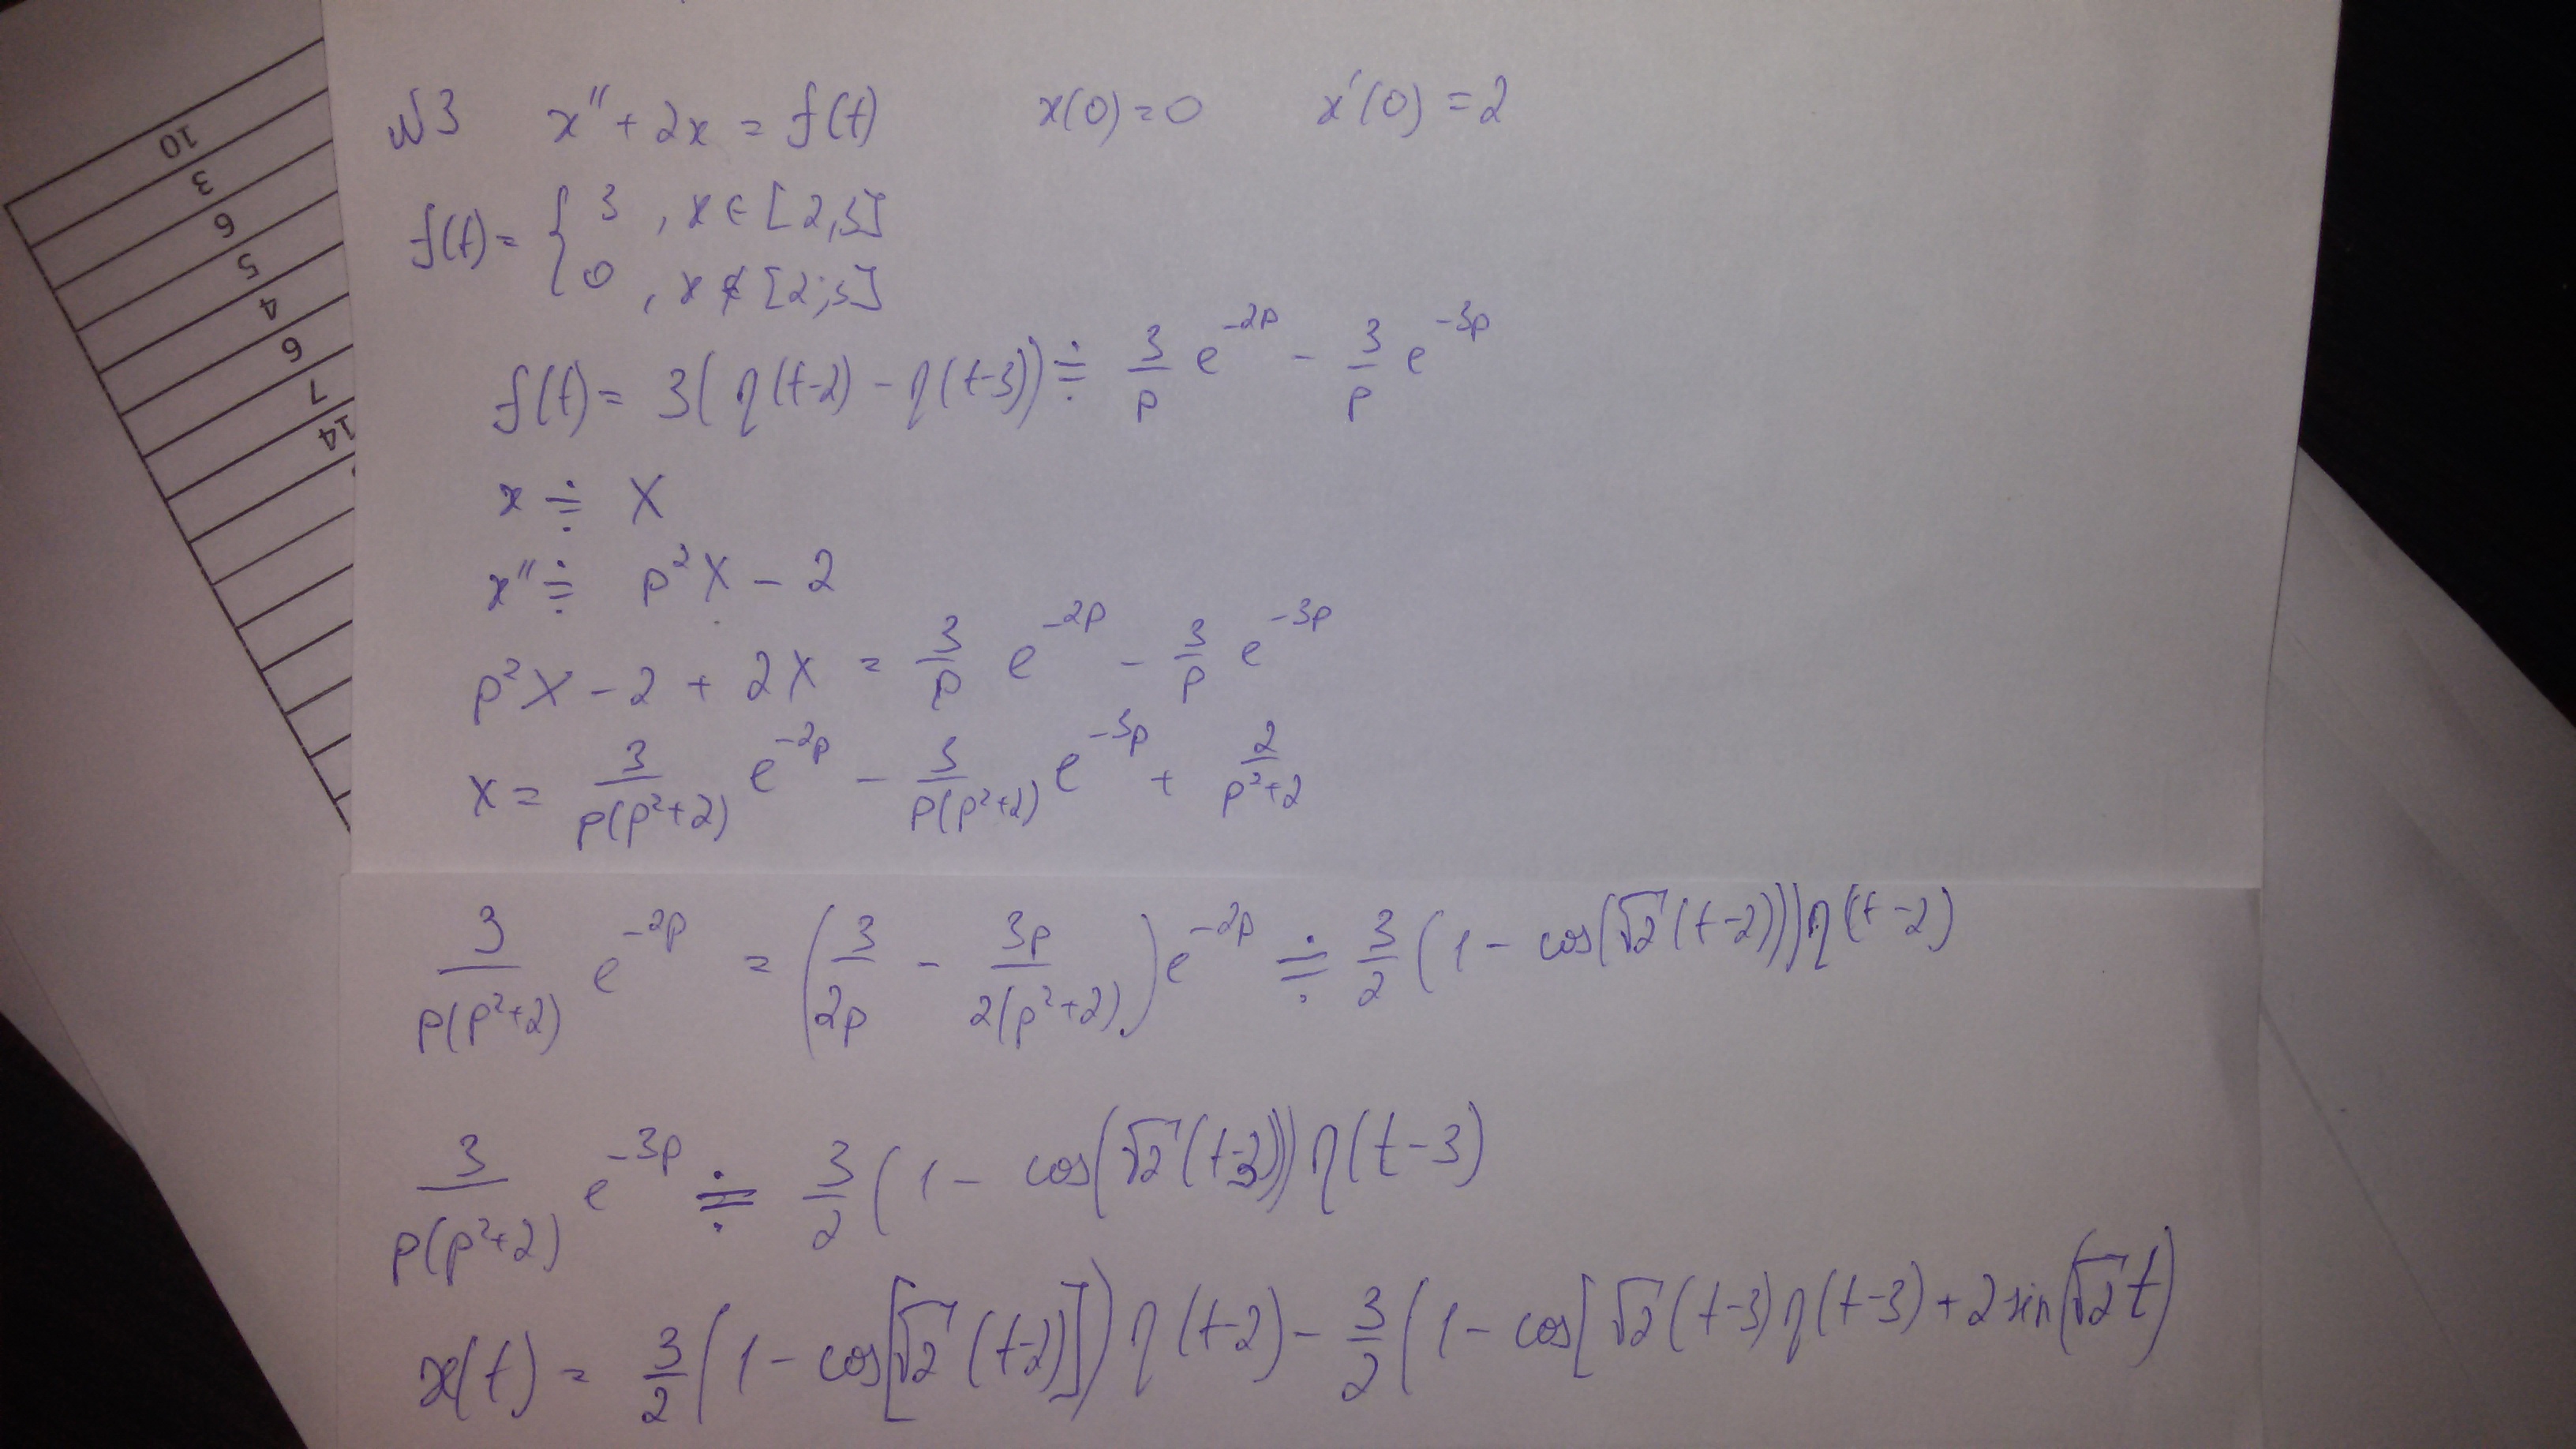 10
3
6
5
4
6
7
14
N3 x'' + 2x = f(t) x(0) = 0 x'(0) = 2
f(t) = { 3 , x ∈ [2,3]
0 , x ∉ [2;3]
f(t) = 3(η(t-2) - η(t-3)) ≑ 3/p e^{-2p} - 3/p e^{-3p}
x ≑ X
x'' ≑ p²X - 2
p²X - 2 + 2X = 3/p e^{-2p} - 3/p e^{-3p}
X = 3/(p(p²+2)) e^{-2p} - 3/(p(p²+2)) e^{-3p} + 2/(p²+2)
3/(p(p²+2)) e^{-2p} = (3/(2p) - 3p/(2(p²+2))) e^{-2p} ≑ 3/2 (1 - cos(√2(t-2))) η(t-2)
3/(p(p²+2)) e^{-3p} ≑ 3/2 (1 - cos(√2(t-3))) η(t-3)
x(t) = 3/2 (1 - cos[√2(t-2)]) η(t-2) - 3/2 (1 - cos[√2(t-3) η(t-3) + 2 sin(√2 t)